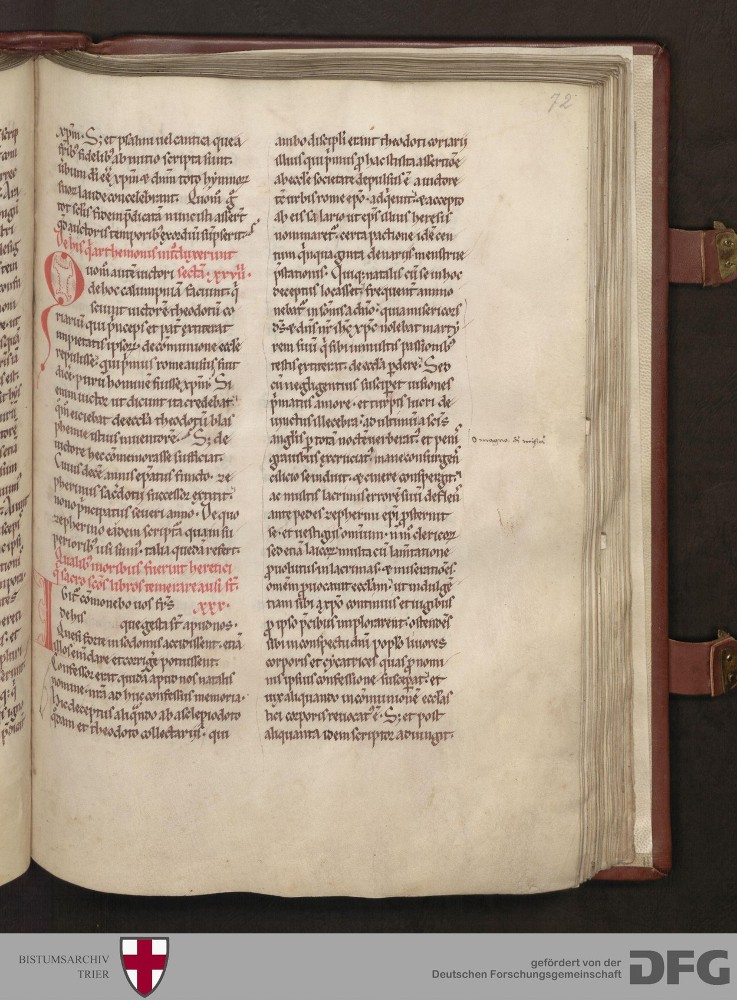 72
xpm. S; et psalmi uel cantica que a
frib; fidelib; ab initio scripta sunt.
uerbum di eē xpm & dnm toto hymnorū
suor laude concelebrant. Quom g̃
tot sclis fidem p̄dicatā in ecclis assert
qd auctoris temporib; exordiū sūpserit.
De his q̃ arthemonis intellexerunt
Quom autē uictori secta. xxviii.
de hoc calumpniā faciunt. q̃
sciunt uictorē theodotū co
riariū qui princeps et pat̃ extiterat
impietatis ipsorū. de cōmunione eccle
repulisse. qui primus rome ausus fuit
dicē. purū hominē fuisse xpm. Si
enim uictor ut dicunt ita credebat.
qm eiciebat de eccla theodotū blas
phemie istius inuentorē. S; de
uictore hec cōmemorasse sufficiat.
Cuius decē annis ep̄atus functo. ze
pherinus sacdotii successor extitit.
nono principatus seueri anno. De quo
zepherino eadem scriptā quam su
perioribus usi sum. talia quedā refert.
Qualib; moribus fuerint heretici
q̃ sacros scos libros temerare ausi st.
xxx.
bis cōmonebo uos frs
de his que gesta st apud nos.
Que si forte in sodomis accidissent. etiā
illos emdare et corrigē potuissent.
Confessor erat quidā apud nos natalis
nomine. in nrā adhuc confessus memoria.
Hic deceptus aliqndo ab asclepiodoto
qdam et theodoto collectariis. qui
ambo discipli erant theodoti coriarii
illius qui primus p hac stulta assertiōe
ab eccle societate depulsus ē a uictore
tē urbis rome epo. adquieuit & accepto
ab eis salario ut eps illius heresis
nominaret. certa pactione id ē cen
tum quinquaginta denariis menstrue
p̄stationis. Qui q̄ natalis cū se in hoc
deceptus locasset. frequent ammo
nebat in somnis a dno. quia misericors
ds & dns nr ihc xpc nolebat marty
rem suū q̃ sibi in multis passionib;
testis extiterat. de eccla pdere. Sed
cū negligentius susciperet uisiones
primatus amore. et turpis lucri de
uinctus illecebra. ad ultimū a scis
anglis p totā noctē uerberat. et peni
grauib; excruciat. mane consurgēs
cilicio se induit. & cinere conspergit
ac multis lacrimis errorē suū deflens
ante pedes zepherini epi prosternit
se. et uestigiis omium. n mō clericor
sed etiā laicor multa cū lamtatione
prouolutus in lacrimas. & miserationes
omem prouocauit ecclam. ut indulge
tiam sibi a xpo continuis et iugibus
p ipso pcibus implorarent. ostendēs
sibi in conspectu dni poplo liuores
corporis et cycatrices quas p nomi
nis ipsius confessione susceperat. et
uix aliquando in cōmunionē ecclas
tici corporis reuocat ē. S; et post
aliquanta idem scriptor adiungit.
o magna di miscdia
BISTUMSARCHIV
TRIER
gefördert von der
Deutschen Forschungsgemeinschaft
DFG